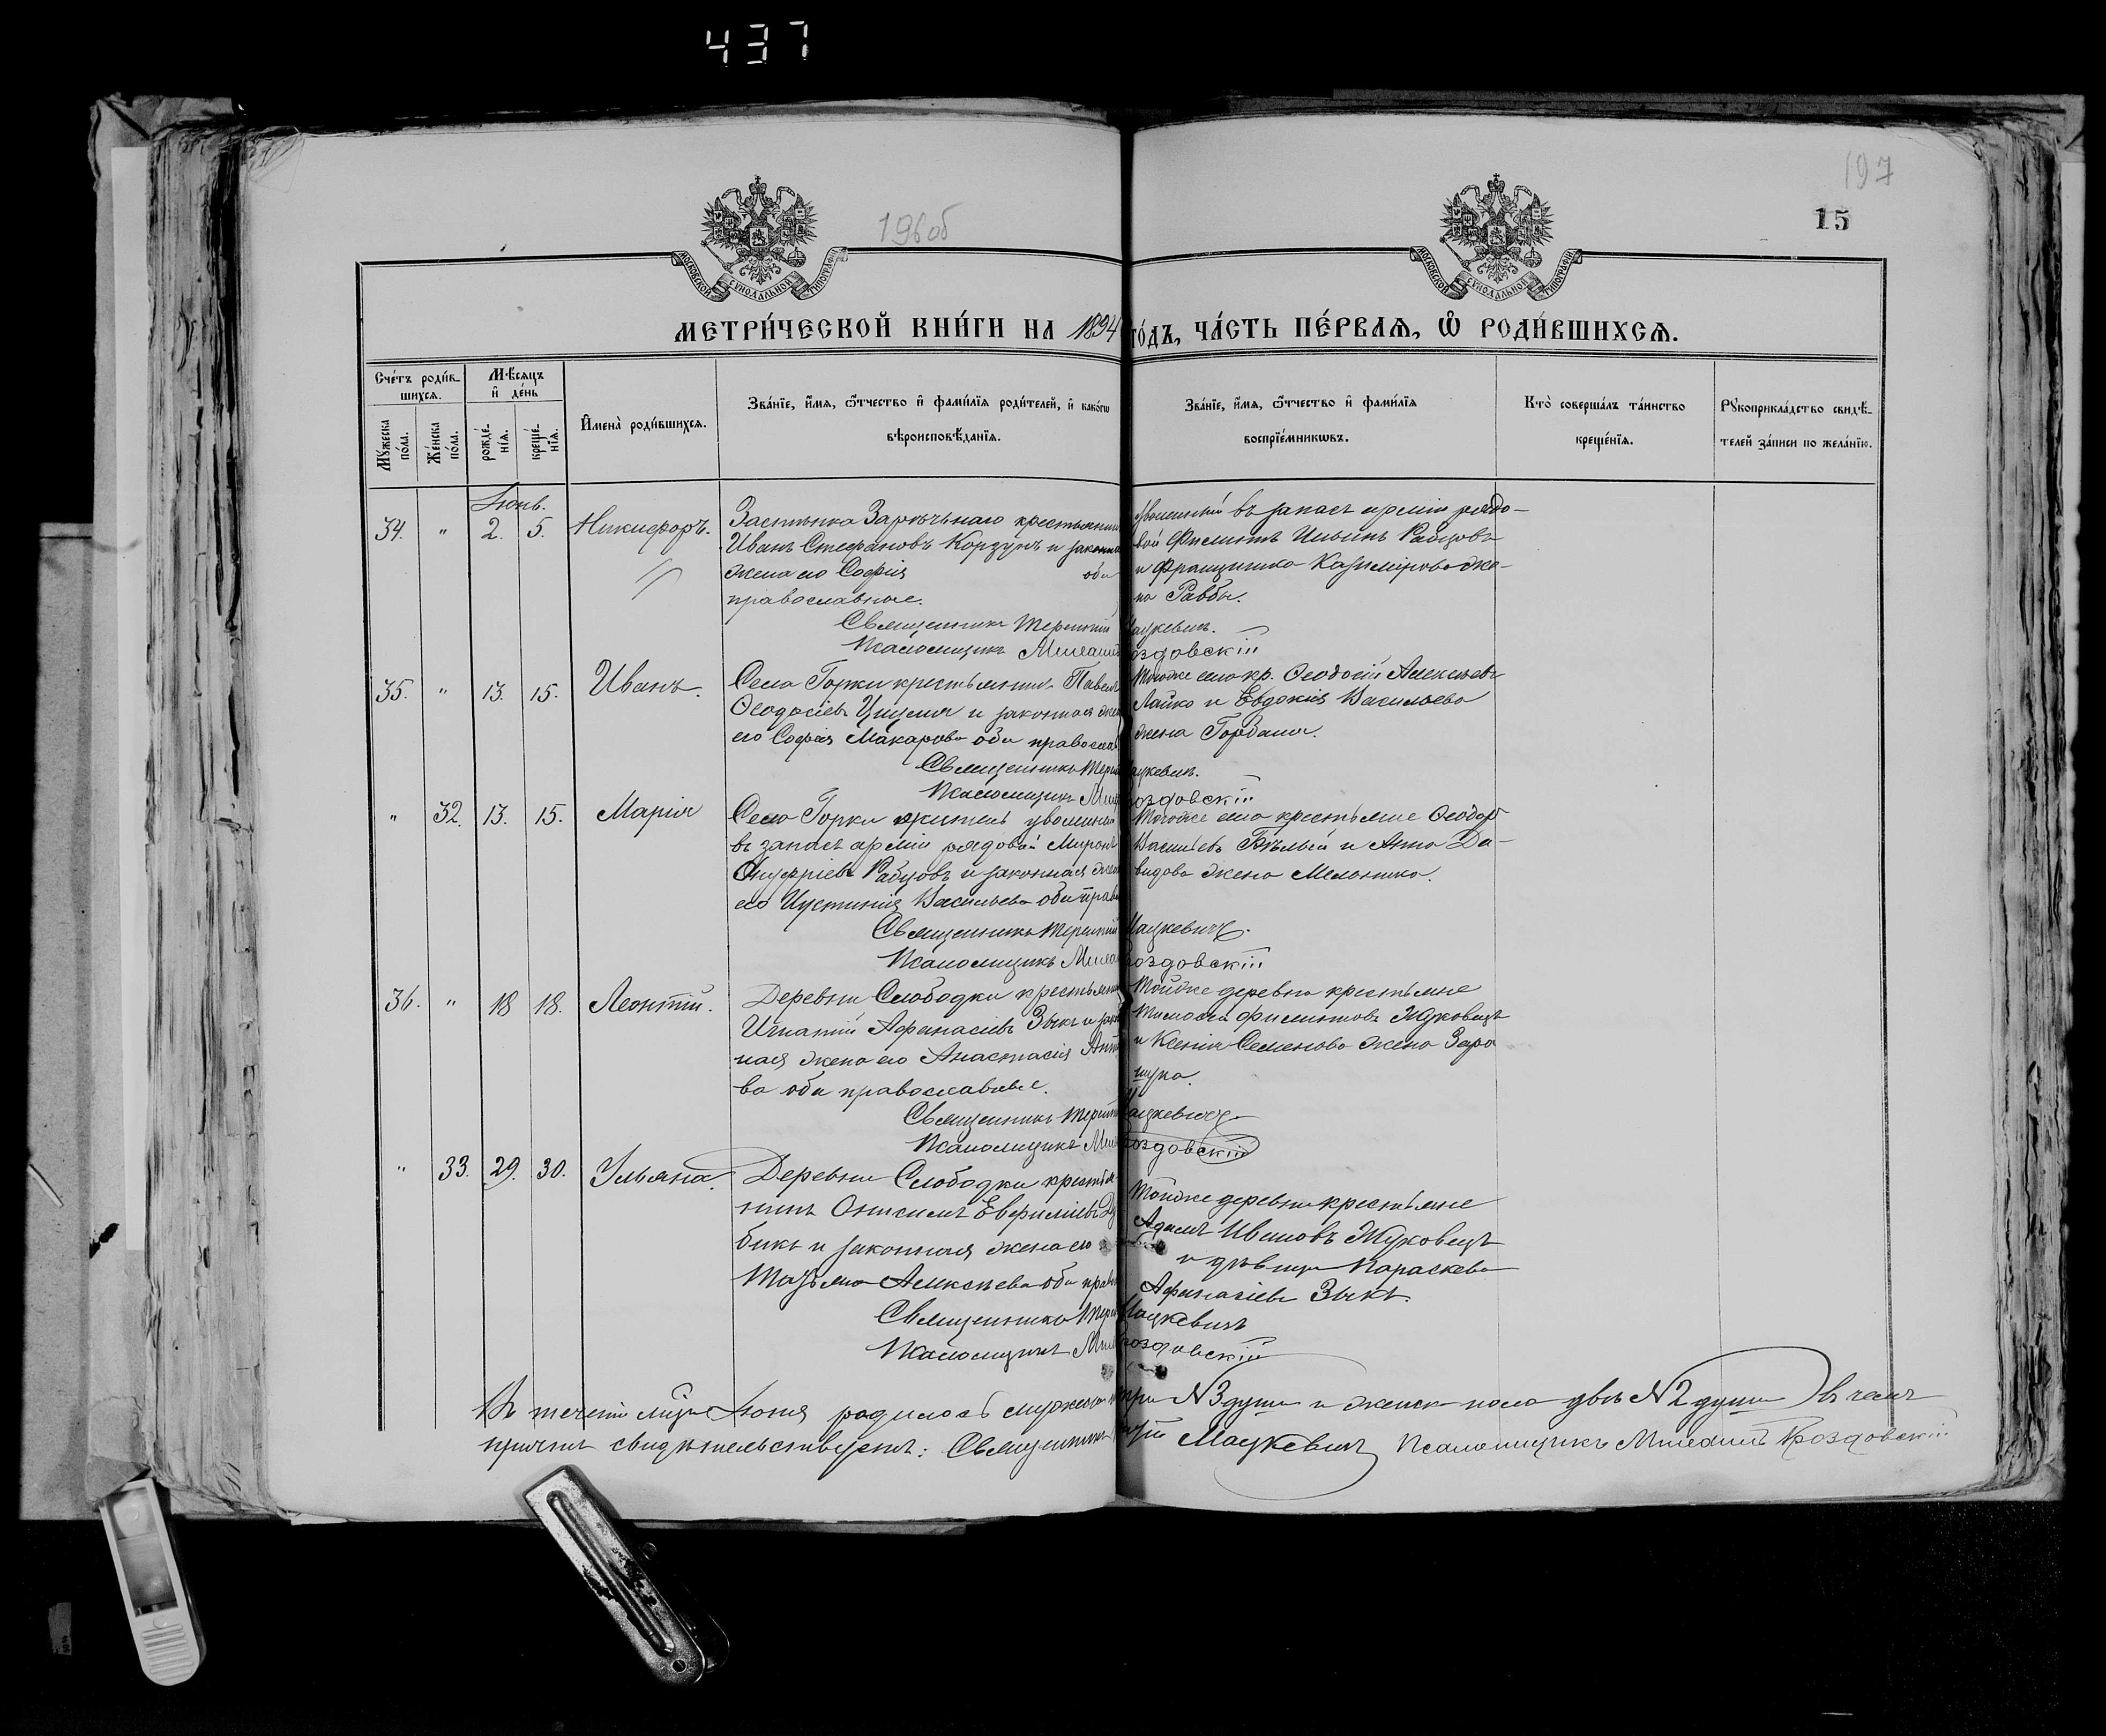 437
197
15
196 об
МОСКОВСКОЙ СѴНОДАЛЬНОЙ ТИПОГРАФІИ
МОСКОВСКОЙ СѴНОДАЛЬНОЙ ТИПОГРАФІИ
МЕТРИ́ЧЕСКОЙ КНИ́ГИ НА 1894 ГО́ДЪ, ЧА́СТЬ ПЕ́РВАЯ, Ѽ РОДИ́ВШИХСЯ.
Сче́тъ роди́в-
шихся.
Мѣ́сяцъ
и҆ де́нь
Мꙋжеска по́ла.
Же́нска по́ла.
рожде́-
нїя.
креще́-
нїя.
И҆мена̀ роди́вшихся.
Зва́нїе, и҆́мя, ѻ҆́тчество и҆ фами́лїя роди́телей, и҆ како́гѡ
вѣроисповѣ́данїя.
Зва́нїе, и҆́мя, ѻ҆́тчество и҆ фами́лїя
воспрїе́мникѡвъ.
Кто̀ соверша́лъ та́инство
креще́нїя.
Рꙋкоприкла́дство свидѣ́-
телей за́писи по жела́нїю.
Іюнь.
34. " 2. 5. Никифоръ.
Застѣнка Зарѣчьнаго крестьянин
Иванъ Стефановъ Корзунъ и законна
жена его Софія оба
православные.
уволенный въ запасъ арміи рядо-
вой Филиппъ Ильинъ Рабцовъ
и Францишка Казимірова же-
на Равбы.
Священникъ Терентій Мацкевичъ.
Псаломщикъ Михаилъ оздовскій
35. " 13. 15. Иванъ.
Села Горки крестьянинъ Павелъ
Ѳеодосіевъ и законная жен
его Софія Макарова оба правосла
Тогоже села кр. Ѳеодосій Алексѣевъ
Лайко и Евдокія Васильева
жена Горбаша.
Священникъ Терен ацкевич.
Псаломщикъ Мих оздовскій
" 32. 13. 15. Марія
Села Горки житель уволенный
въ запасъ арміи рядовой Миронъ
Онуфріевъ Рабцовъ и законная жен
его Иустинія Васильева оба прав
Тогоже села крестьяне Ѳеодоръ
Васильевъ Бѣлый и Анна Да-
видова жена Мельника.
Священникъ Терентій Мацкевичъ.
Псаломщикъ Миха оздовскій
36. " 18 18. Леонтій.
Деревни Слободки крестьян
Игнатій Афанасіевъ Зыкъ и зако
ная жена его Анастасія Анто
ва оба православные.
Тойже деревни крестьяне
Тимофей Филипповъ Жуковецъ
и Ксенія Семенова жена Зара
щука.
Священникъ Терент Мацкевичъ
Псаломщикъ Мих оздовскій
" 33. 29. 30. Ульяна.
Деревни Слободки крестья
нинъ Онисимъ Евфиміевъ Ду
бикъ и законная жена его
Татьяна Алексѣева оба прав
Тойже деревни крестьяне
Адамъ Ивановъ Жуковецъ
и дѣвица Параскева
Афанасіева Зыкъ.
Священникъ Терен Мацкевичъ
Псаломщикъ Мих оздовскій
Въ теченіи мѣсяца Іюня родилось мужеска три N3 души и женск пола двѣ N2 души въ чемъ
причтъ свидѣтельствуетъ: Священникъ тій Мацкевичъ Псаломщикъ Михаилъ оздовскій